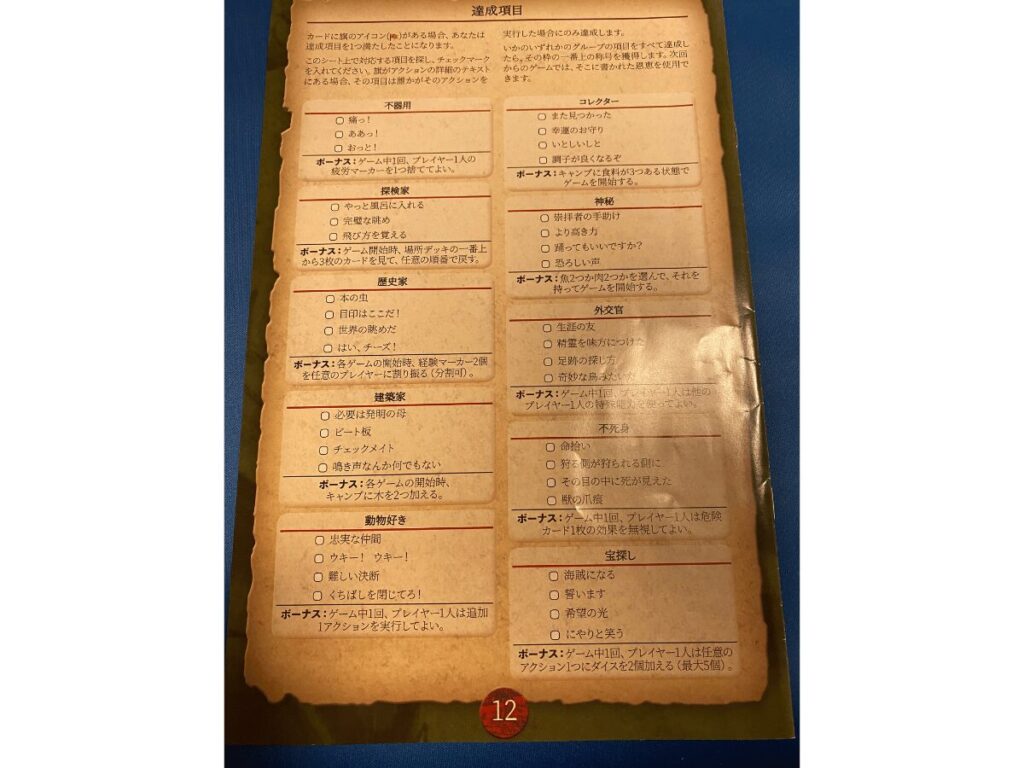 達成項目
カードに旗のアイコン()がある場合、あなたは
達成項目を1つ満たしたことになります。
このシート上で対応する項目を探し、チェックマーク
を入れてください。旗がアクションの詳細のテキスト
にある場合、その項目は誰かがそのアクションを
実行した場合にのみ達成します。
いかのいずれかのグループの項目をすべて達成し
たら、その枠の一番上の称号を獲得します。次回
からのゲームでは、そこに書かれた恩恵を使用で
きます。
不器用
痛っ!
ああっ!
おっと!
ボーナス:ゲーム中1回、プレイヤー1人の
疲労マーカーを1つ捨ててよい。
探検家
やっと風呂に入れる
完璧な眺め
飛び方を覚える
ボーナス:ゲーム開始時、場所デッキの一番上
から3枚のカードを見て、任意の順番で戻す。
歴史家
本の虫
目印はここだ!
世界の眺めだ
はい、チーズ!
ボーナス:各ゲームの開始時、経験マーカー2個
を任意のプレイヤーに割り振る(分割可)。
建築家
必要は発明の母
ビート板
チェックメイト
鳴き声なんか何でもない
ボーナス:各ゲームの開始時、
キャンプに木を2つ加える。
動物好き
忠実な仲間
ウキー! ウキー!
難しい決断
くちばしを閉じてろ!
ボーナス:ゲーム中1回、プレイヤー1人は追加
1アクションを実行してよい。
コレクター
また見つかった
幸運のお守り
いとしいしと
調子が良くなるぞ
ボーナス:キャンプに食料が3つある状態で
ゲームを開始する。
神秘
崇拝者の手助け
より高き力
踊ってもいいですか?
恐ろしい声
ボーナス:魚2つか肉2つかを選んで、それを
持ってゲームを開始する。
外交官
生涯の友
精霊を味方につけた
足跡の探し方
奇妙な鳥みたいな
ボーナス:ゲーム中1回、プレイヤー1人は他の
プレイヤー1人の特殊能力を使ってよい。
不死身
命拾い
狩る側が狩られる側に
その目の中に死が見えた
獣の爪痕
ボーナス:ゲーム中1回、プレイヤー1人は危険
カード1枚の効果を無視してよい。
宝探し
海賊になる
誓います
希望の光
にやりと笑う
ボーナス:ゲーム中1回、プレイヤー1人は任意の
アクション1つにダイスを2個加える(最大5個)。
12